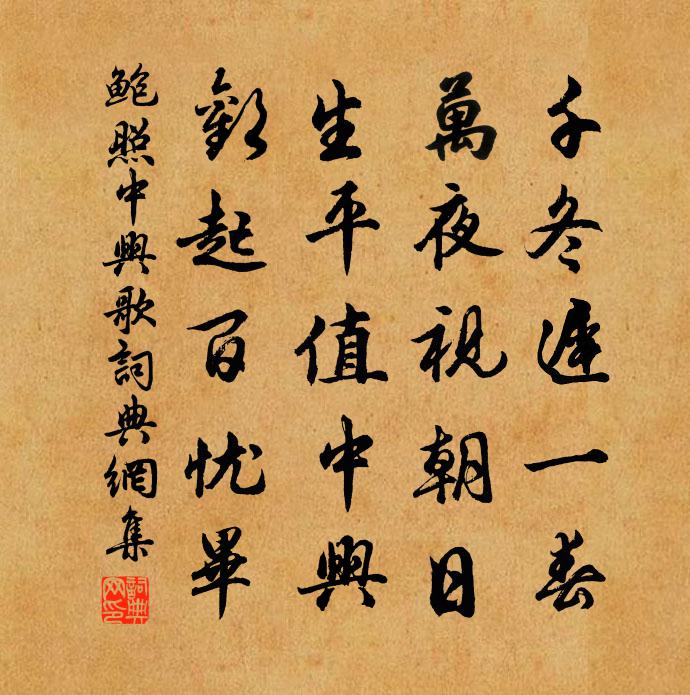 千冬遲一春
萬夜視朝日
生平值中興
歡起百忧畢
鲍照中興歌詞典網集
詞典网印